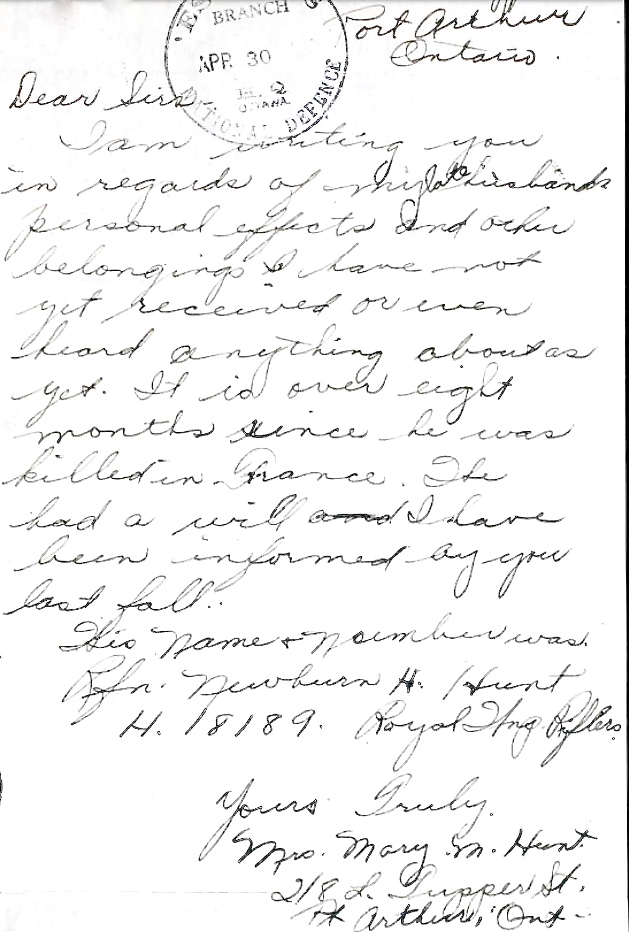 BRANCH
APR 30
OTTAWA
NATIONAL DEFENCE
Port Arthur
Ontario.
Dear Sirs,
I am writing you
in regards of my late husbands
personal effects and other
belongings I have not
yet received or even
heard anything about as
yet. It is over eight
months since he was
killed in France. He
had a will and I have
been informed by you
last fall.
His Name & Noumber was.
Rfn. Newburn H. Hunt
H. 18189. Royal Wng. Rifles
Yours Truly.
Mrs. Mary M. Hunt.
218 L. Tupper St.
Pt Arthur, Ont-